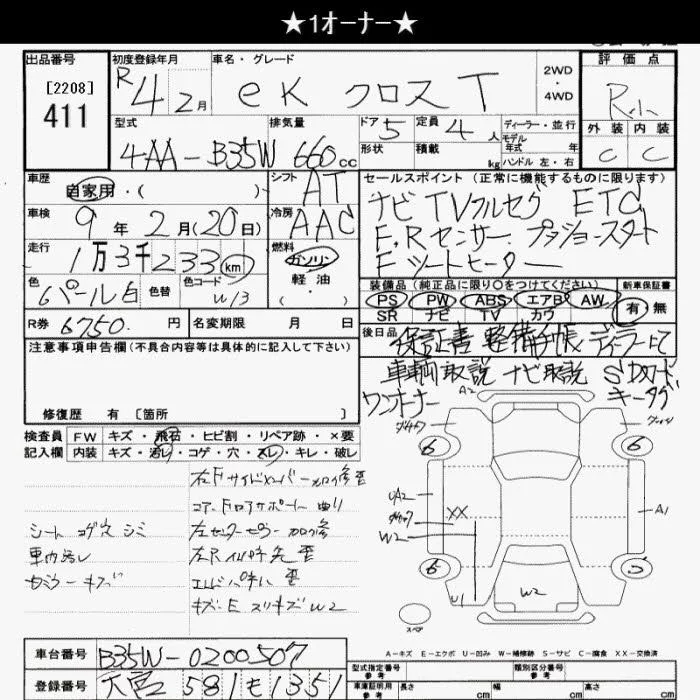 ★1オーナー★
出品番号 初度登録年月 車名・グレード 評価点
[2208]
411
R4 2月 eK クロス T 2WD・4WD R小
外装 内装
C C
型式 排気量 ドア 5 定員 4人 ディーラー・並行
モデル年式 年
形状 積載 kg ハンドル 左・右
4AA-B35W 660cc
車歴 自家用・( )
シフト AT
車検 9年 2月(20日)
冷房 AAC
走行 1万3千233km
燃料 ガソリン・軽油・( )
色 パール白 色替 色コード W13
R券 6750.円 名変期限 月 日
セールスポイント(正常に機能するものに限ります)
ナビ TVフルセグ ETC
F,Rセンサー プッシュスタート
シートヒーター
装備品(純正品に限り○をつけてください) 新車保証書
PS PW ABS エアB AW 有・無
SR ナビ TV カワ
後日品 保証書 整備手帳
車輌取説 ナビ取説 SDカード
ワンオーナー キータグ
注意事項申告欄(不具合内容等は具体的に記入して下さい)
修復歴 有 [箇所 ]
検査員記入欄 FW キズ・飛石・ヒビ割・リペア跡・×要
内装 キズ・汚レ・コゲ・穴・スレ・キレ・破レ
シート コゲ穴 シミ
車内汚レ
左Rインパネ先 歪
エンドパネル 歪
キズ・E スリキズ W2
A2
6 6
UA2
XX
W2
A1
6 5
U1 W2
スペア
A-キズ E-エクボ U-凹み W-補修跡 S-サビ C-腐食 XX-交換済
車台番号 B35W-0200507
登録番号 581も1351
型式指定番号 参考 類別区分番号 参考
車庫証明用 参考 長さ cm 幅 cm 高さ cm